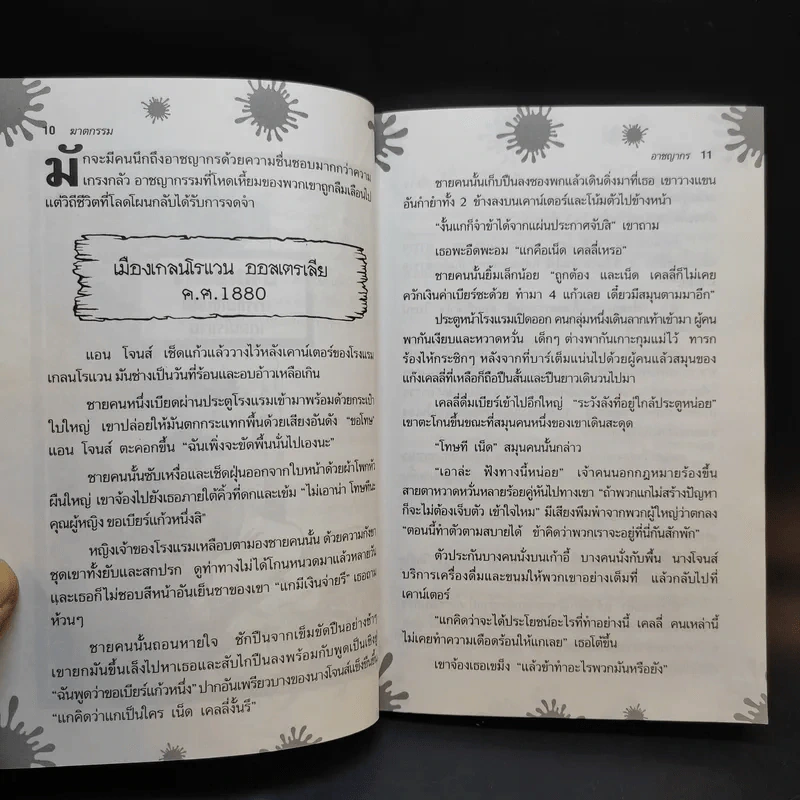 10 ฆาตกรรม
มักจะมีคนนึกถึงอาชญากรด้วยความชื่นชอบมากกว่าความ
เกรงกลัว อาชญากรรมที่โหดเหี้ยมของพวกเขาถูกลืมเลือนไป
แต่วิถีชีวิตที่โลดโผนกลับได้รับการจดจำ
เมืองเกลนโรแวน ออสเตรเลีย
ค.ศ.1880
แอน โจนส์ เช็ดแก้วแล้ววางไว้หลังเคาน์เตอร์ของโรงแรม
เกลนโรแวน มันช่างเป็นวันที่ร้อนและอบอ้าวเหลือเกิน
ชายคนหนึ่งเบียดผ่านประตูโรงแรมเข้ามาพร้อมด้วยกระเป๋า
ใบใหญ่ เขาปล่อยให้มันตกกระแทกพื้นด้วยเสียงอันดัง "ขอโทษ"
แอน โจนส์ ตะคอกขึ้น "ฉันเพิ่งจะขัดพื้นนั่นไปเองนะ"
ชายคนนั้นซับเหงื่อและเช็ดฝุ่นออกจากใบหน้าด้วยผ้าโพกหัว
ผืนใหญ่ เขาจ้องไปยังเธอภายใต้คิ้วที่ดกและเข้ม "ไม่เอาน่า โทษทีนะ
คุณผู้หญิง ขอเบียร์แก้วหนึ่งสิ"
หญิงเจ้าของโรงแรมเหลือบตามองชายคนนั้น ด้วยความกังขา
ชุดเขาทั้งยับและสกปรก ดูท่าทางไม่ได้โกนหนวดมาแล้วหลายวัน
และเธอก็ไม่ชอบสีหน้าอันเย็นชาของเขา "แกมีเงินจ่ายรึ" เธอถาม
ห้วนๆ
ชายคนนั้นถอนหายใจ ชักปืนจากเข็มขัดปืนอย่างช้าๆ
เขายกมันขึ้นเล็งไปหาเธอและสับไกปืนลงพร้อมกับพูดเป็นเชิงขู่
"ฉันพูดว่าขอเบียร์แก้วหนึ่ง" ปากอันเพรียวบางของนางโจนส์แข็งขืนขึ้น
"แกคิดว่าแกเป็นใคร เน็ด เคลลี่งั้นรึ"
อาชญากร 11
ชายคนนั้นเก็บปืนลงซองพกแล้วเดินดิ่งมาที่เธอ เขาวางแขน
อันกำยำทั้ง 2 ข้างลงบนเคาน์เตอร์และโน้มตัวไปข้างหน้า
"งั้นแกก็จำข้าได้จากแผ่นประกาศจับสิ" เขาถาม
เธอพะอืดพะอม "แกคือเน็ด เคลลี่เหรอ"
ชายคนนั้นยิ้มเล็กน้อย "ถูกต้อง และเน็ด เคลลี่ก็ไม่เคย
ควักเงินค่าเบียร์ซะด้วย ทำมา 4 แก้วเลย เดี๋ยวมีสมุนตามมาอีก"
ประตูหน้าโรงแรมเปิดออก คนกลุ่มหนึ่งเดินลากเท้าเข้ามา ผู้คน
พากันเงียบและหวาดหวั่น เด็กๆ ต่างพากันเกาะกุมแม่ไว้ ทารก
ร้องไห้กระซิกๆ หลังจากที่บาร์เต็มแน่นไปด้วยผู้คนแล้วสมุนของ
แก๊งเคลลี่ที่เหลือก็ถือปืนสั้นและปืนยาวเดินวนไปมา
เคลลี่ดื่มเบียร์เข้าไปอึกใหญ่ "ระวังลังที่อยู่ใกล้ประตูหน่อย"
เขาตะโกนขึ้นขณะที่สมุนคนหนึ่งของเขาเดินสะดุด
"โทษที เน็ด" สมุนคนนั้นกล่าว
"เอาล่ะ ฟังทางนี้หน่อย" เจ้าคนนอกกฎหมายร้องขึ้น
สายตาหวาดหวั่นหลายร้อยคู่หันไปทางเขา "ถ้าพวกแกไม่สร้างปัญหา
ก็จะไม่ต้องเจ็บตัว เข้าใจไหม" มีเสียงพึมพำจากพวกผู้ใหญ่ว่าตกลง
"ตอนนี้ทำตัวตามสบายได้ ข้าคิดว่าพวกเราจะอยู่ที่นี่กันสักพัก"
ตัวประกันบางคนนั่งบนเก้าอี้ บางคนนั่งกับพื้น นางโจนส์
บริการเครื่องดื่มและขนมให้พวกเขาอย่างเต็มที่ แล้วกลับไปที่
เคาน์เตอร์
"แกคิดว่าจะได้ประโยชน์อะไรที่ทำอย่างนี้ เคลลี่ คนเหล่านี้
ไม่เคยทำความเดือดร้อนให้แกเลย" เธอโต้ขึ้น
เขาจ้องเธอเขม็ง "แล้วข้าทำอะไรพวกมันหรือยัง"